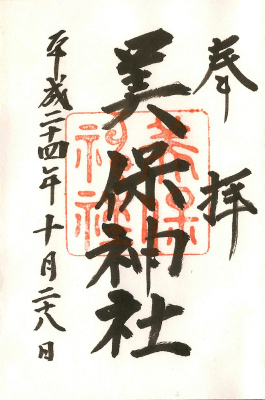 奉拝
美保神社
美保
神社
平成二十四年十月二十八日